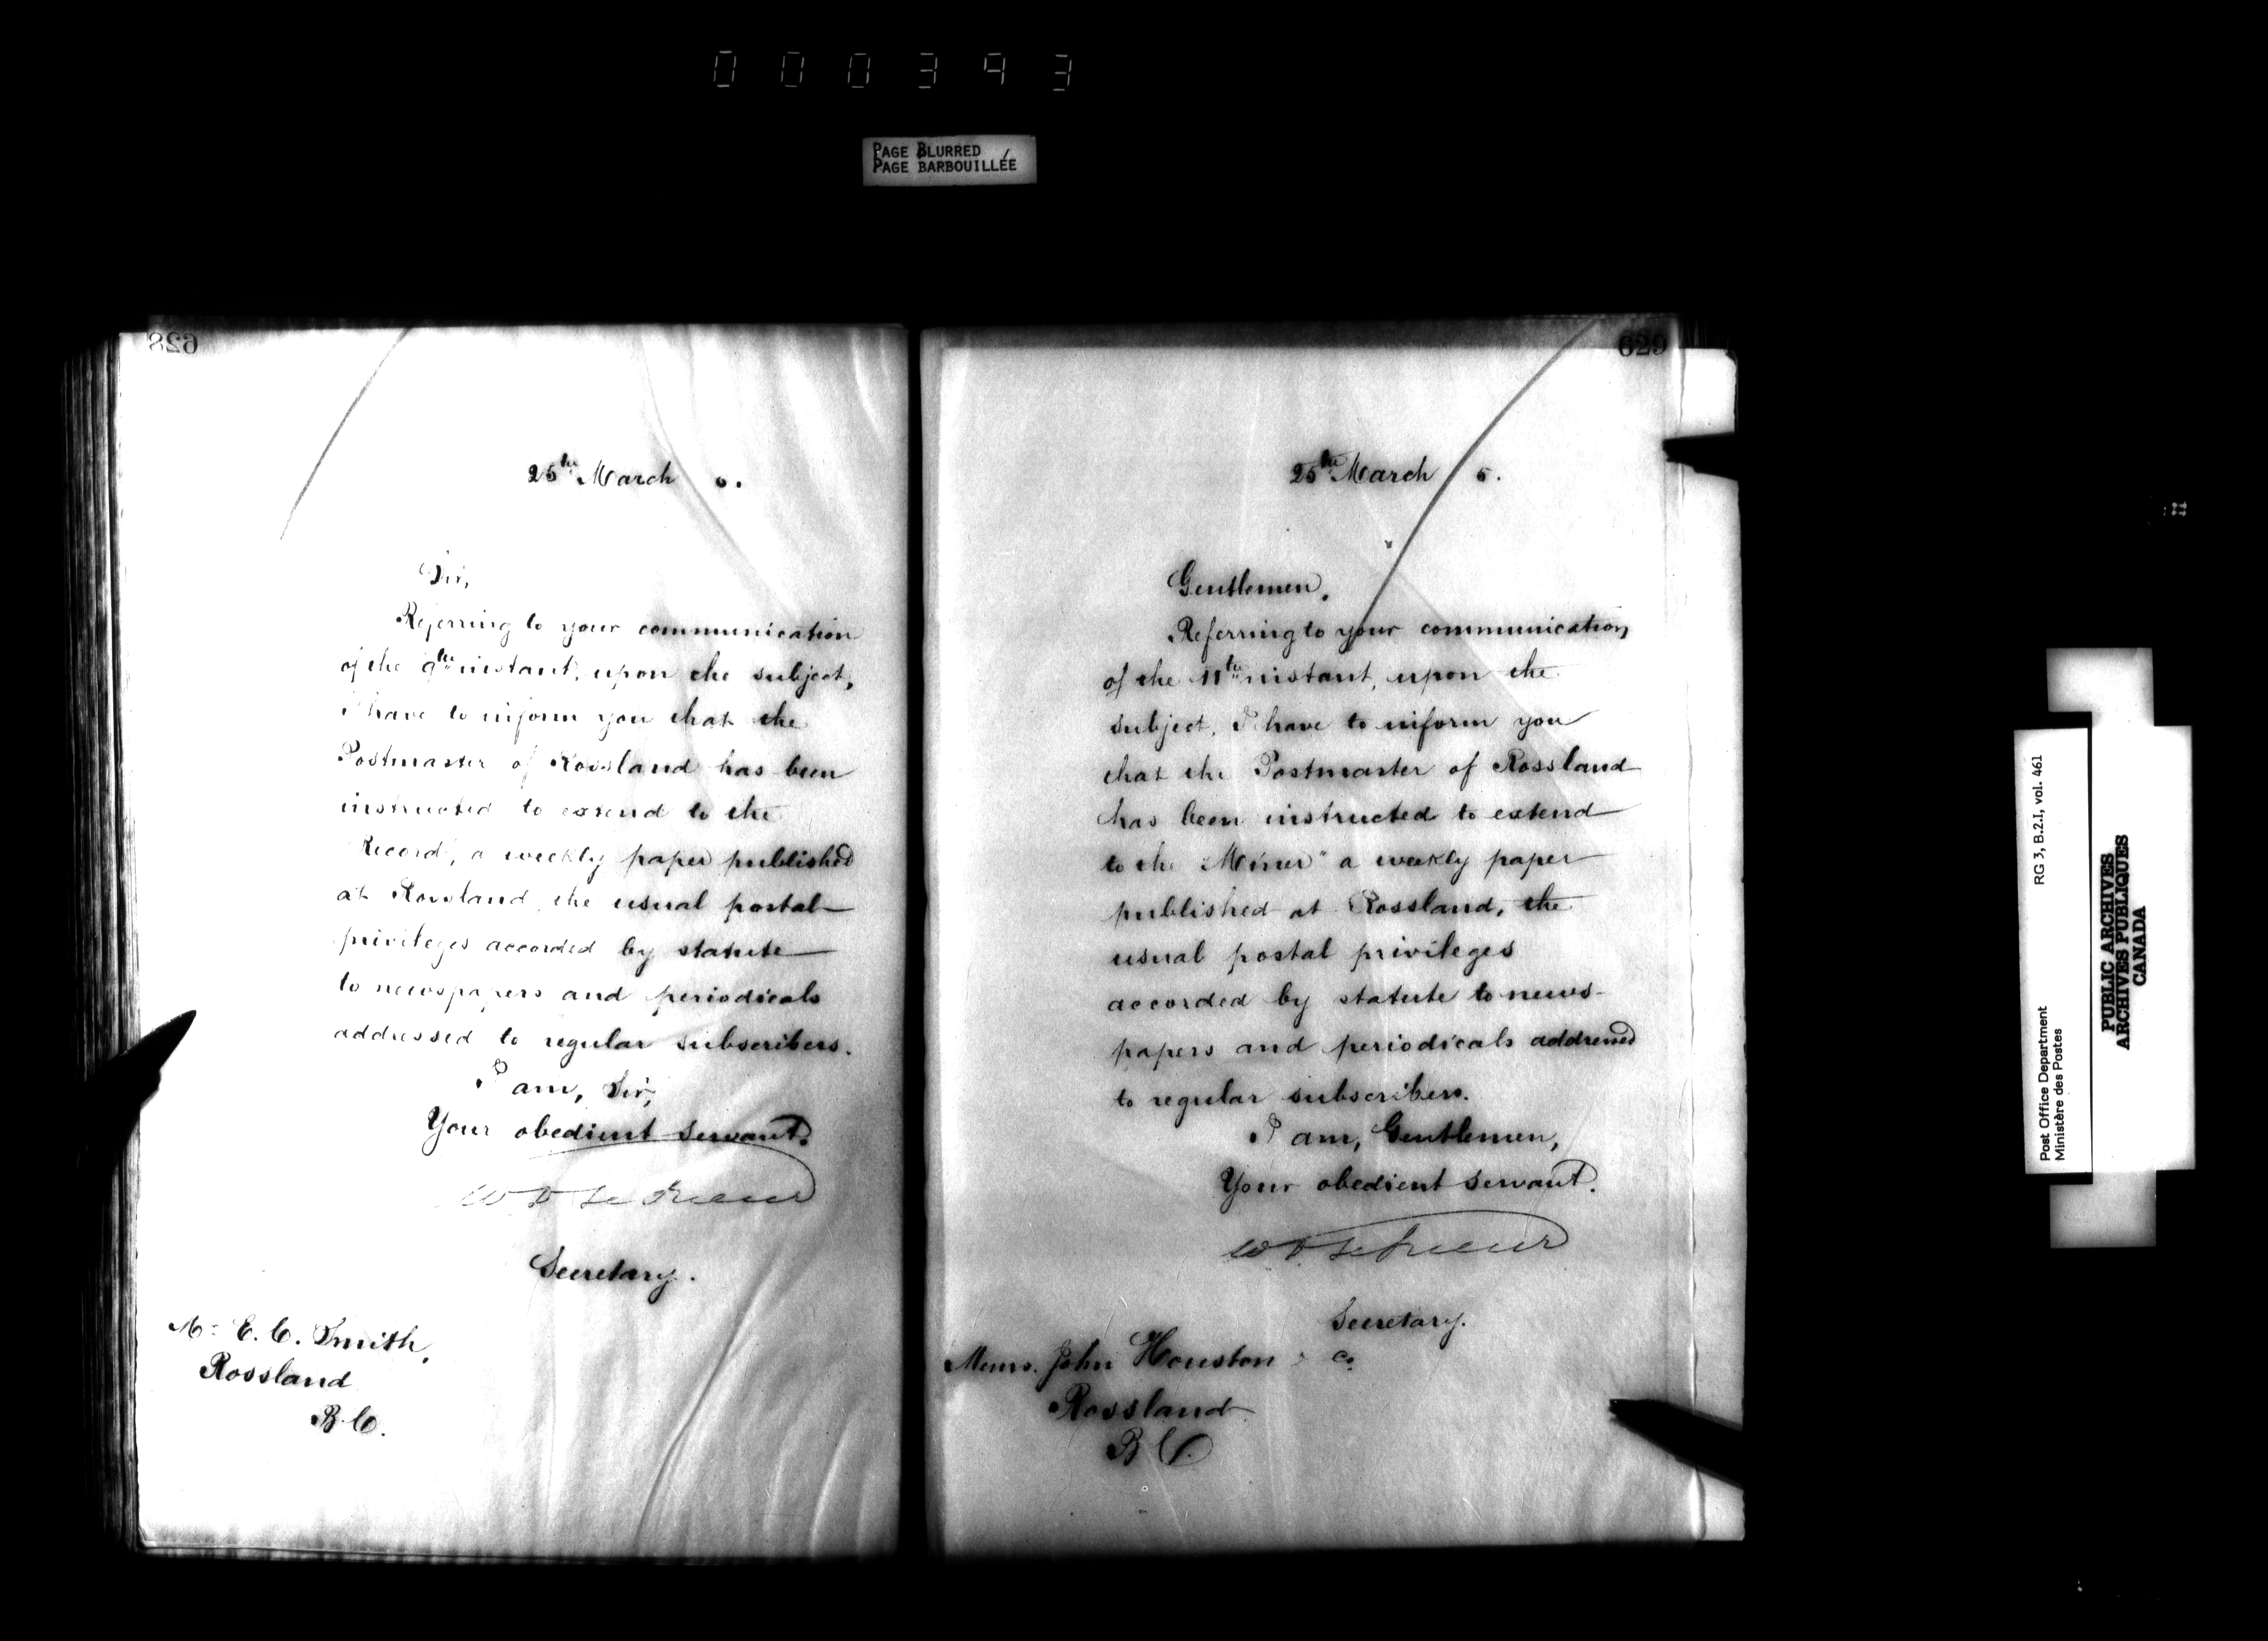 000393
PAGE BLURRED
PAGE BARBOUILLÉE
628
25th March 5.
Sir,
Referring to your communication
of the 9th instant, upon the subject,
I have to inform you that the
Postmaster of Rossland has been
instructed to extend to the
"Record", a weekly paper published
at Rossland, the usual postal
privileges accorded by statute
to newspapers and periodicals
addressed to regular subscribers.
I am, Sir,
Your obedient servant.
Secretary.
Mr. E. C. Smith,
Rossland
B.C.
629
25th March 5.
Gentlemen,
Referring to your communication
of the 11th instant, upon the
subject, I have to inform you
that the Postmaster of Rossland
has been instructed to extend
to the "Miner" a weekly paper
published at Rossland, the
usual postal privileges
accorded by statute to news-
papers and periodicals addressed
to regular subscribers.
I am, Gentlemen,
Your obedient servant.
Secretary.
Messrs. John Houston & Co.
Rossland
B.C.
Post Office Department RG 3, B.2.I, vol. 461
Ministère des Postes
PUBLIC ARCHIVES
ARCHIVES PUBLIQUES
CANADA